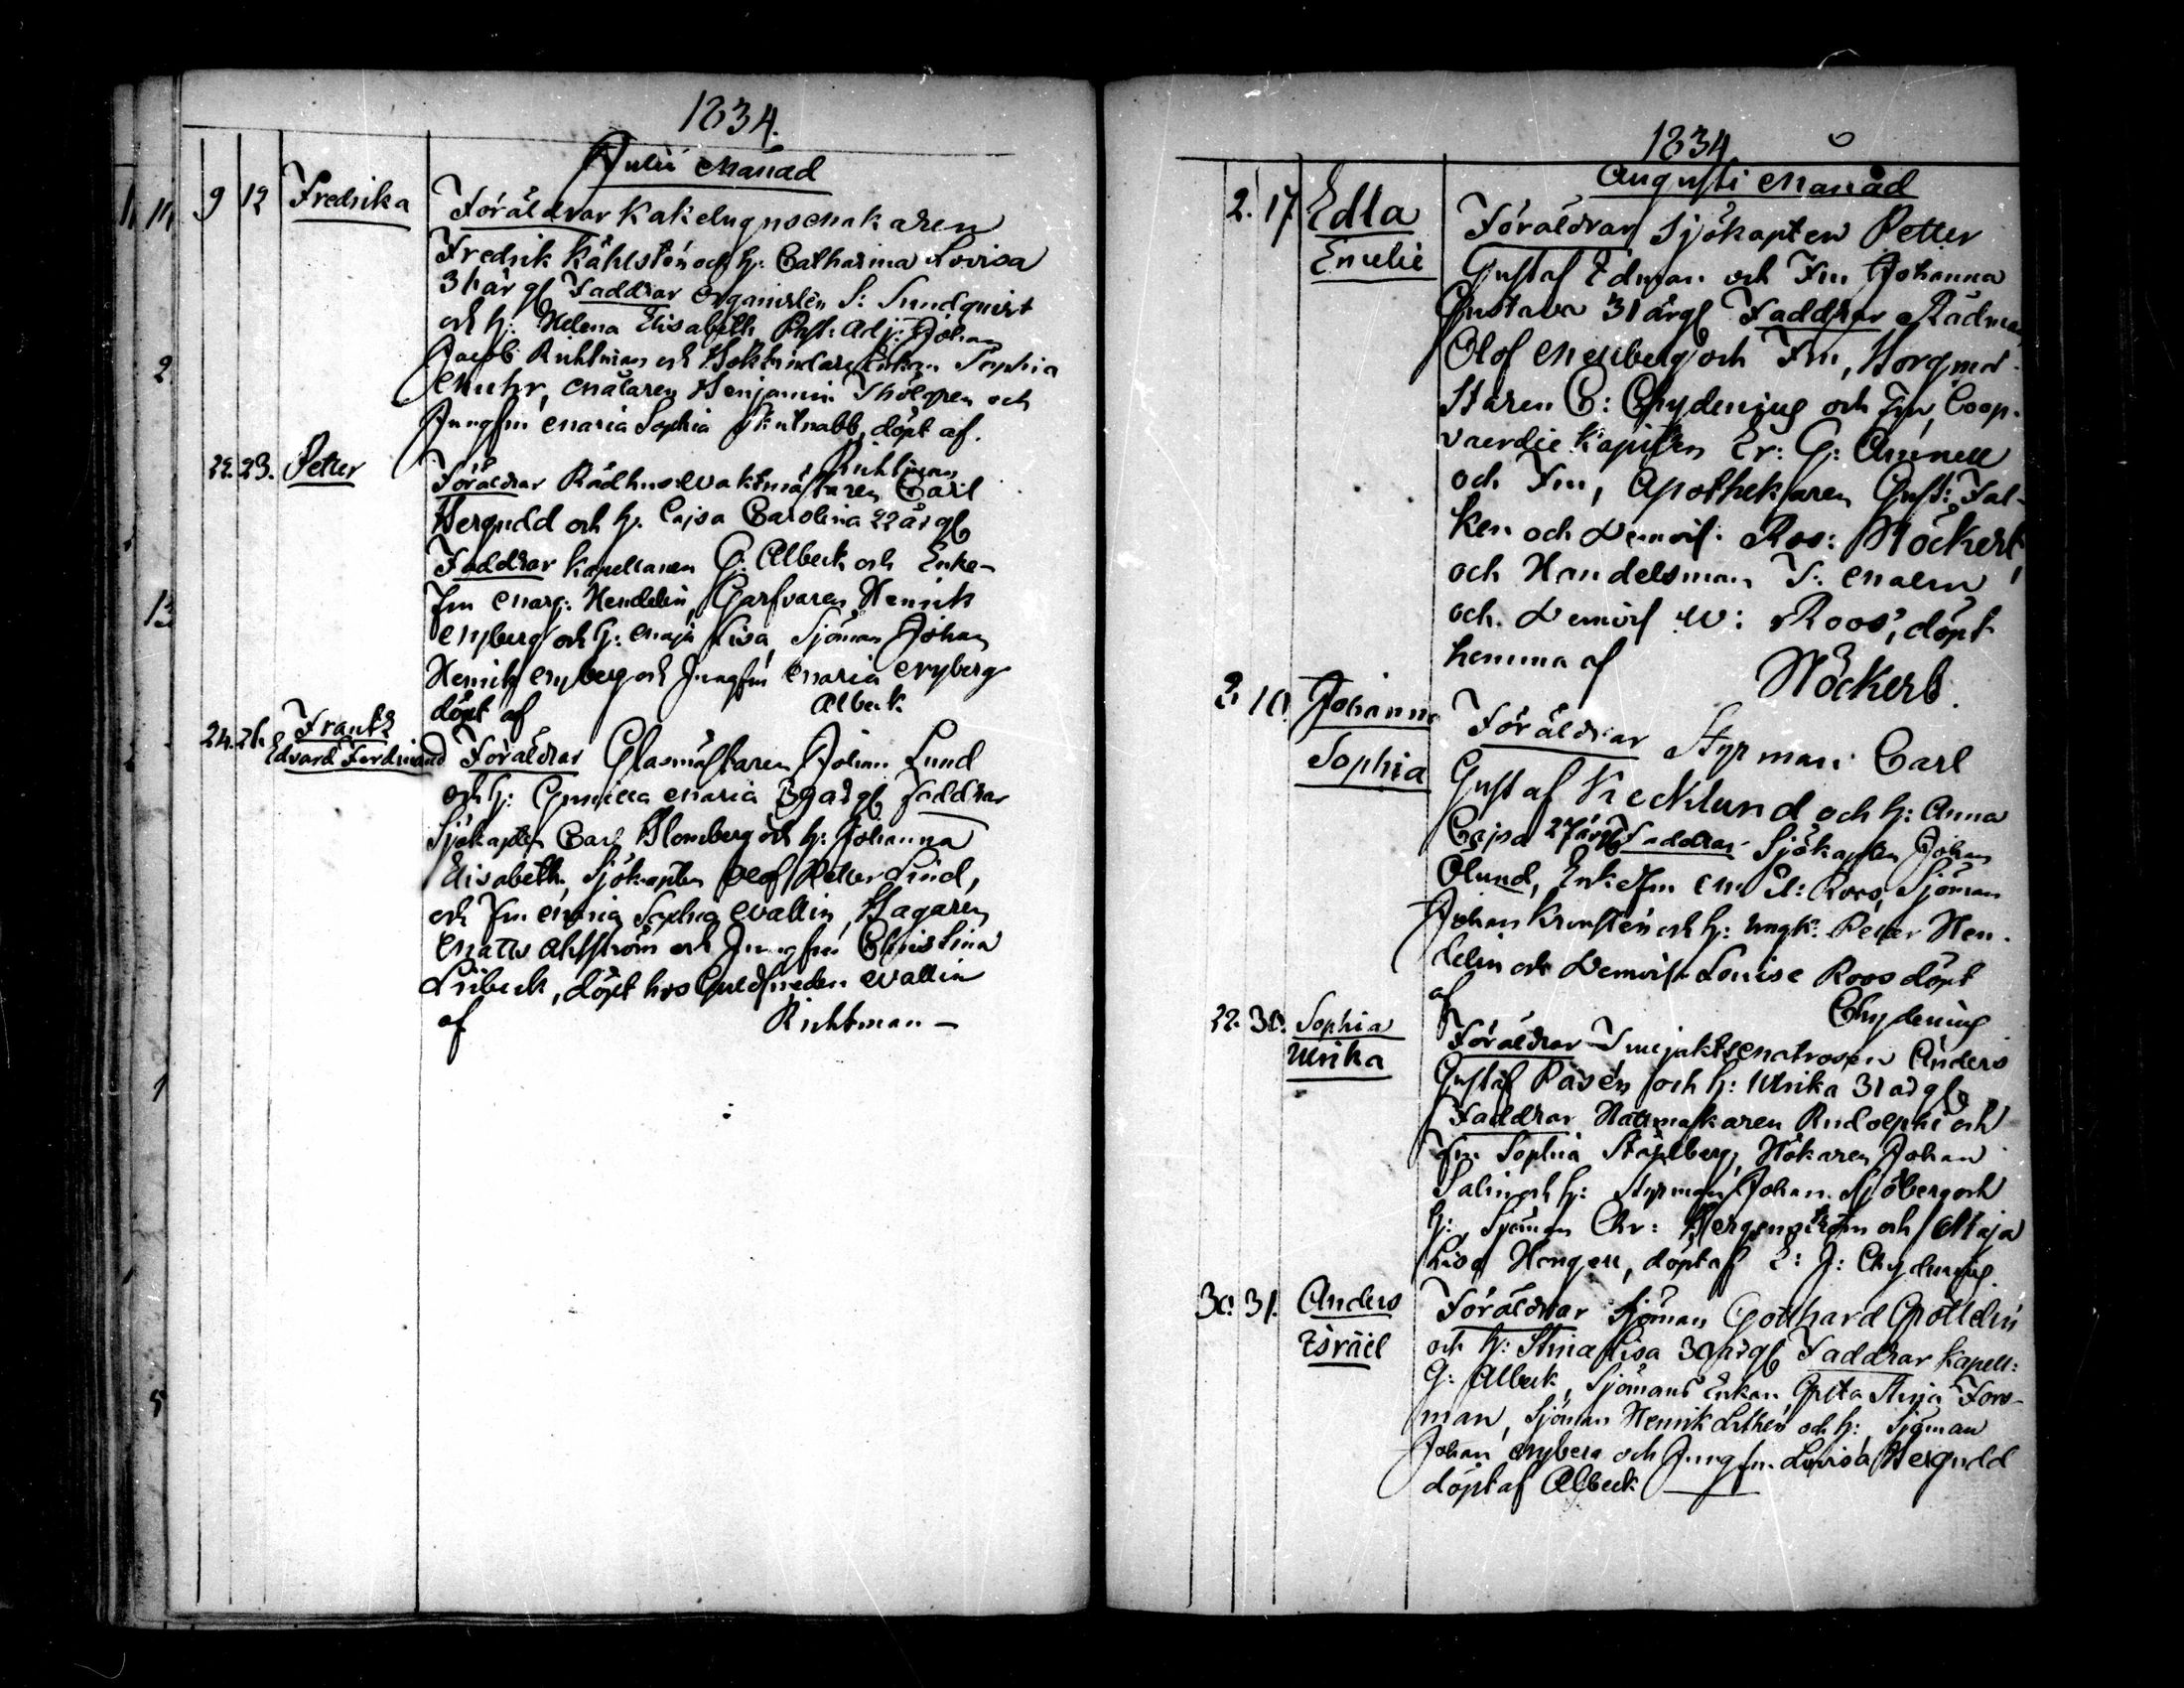 1834.
Julii Månad
9 12 Fredrika Föräldrar Kakelugnsmakaren
Fredrik Kåhlstén och h: Catharina Lovisa
31 år gl Faddrar Organisten S: Sundqvist
och h: Helena Elisabeth, Past: Adj: Johan
Jacob Kuhlman och Enkan Sophia
Muhr, Målaren Benjamin Thölgren och
Jungfru Maria Sophia döpt af
Kuhlman
22. 23. Petter Föräldrar Rådhus Waktmästaren Carl
Bergudd och h. Cajsa Carolina 22 år gl
Faddrar Kapellanen G: Albeck och Enke-
fru Marg: Hendelin, Garfvaren Henrik
Nyberg och h: Maja Lisa, Sjöman Johan
Henrik Nyberg och Jungfru Maria Nyberg
döpt af Albeck
24. 26. Frantz
Edvard Ferdinand Föräldrar Glasmästaren Johan Lund
och h: Gunilla Maria 39 år gl Faddrar
Sjökapten Carl Blomberg och h: Johanna
Elisabeth, Sjökapten Olof Petter Lind,
och Fru Sophia Wallin, Bagaren
Matts Ahlström och Jungfru Christina
Lübeck, döpt hos Guldsmeden Wallin
af Kuhlman

1834
Augusti Månad
2. 17 Edla Föräldrar Sjökapten Petter
Emelie Gustaf Edman och Fru Johanna
Gustava 31 år gl Faddrar Rådman
Olof Mellberg och Fru, Borgmä-
staren C: Chydenius och Fru, Coop-
vaerdie Kapiten Er: G: Annell
och Fru, Apothekaren Gust: Fal-
ken och Demois: Ros: Höckert,
och Handelsman S: Malm
och Demois W: Roos, döpt
hemma af Höckert.
2. 10. Johanna Föräldrar Styrman Carl
Sophia Gustaf Kecklund och h: Anna
Cajsa 27 år gl Faddrar Sjökapten Johan
Ölund, Enkefru M: U: Roos, Sjöman
Johan Kronstén och h: Ungk: Petter Hen-
delin och Demois: Louise Roos döpt
af Chydenius
22. 30. Sophia Föräldrar Anders
Ulrika Gustaf Rasén och h: Ulrika 31 år gl
Faddrar Hattmakaren Rudolphi och
Fru Sophia Ståhlberg, Hökaren Johan
Salin och h: Styrman Johan Sjöberg och
h:, Sjöman Chr: Bergenström och Maja
Lisa Hongell, döpt af E: J: Chydenius.
30. 31. Anders Föräldrar Sjöman Gotthard
Israël och h: Stina Lisa 30 år gl Faddrar Kapell:
G: Albeck, Sjömans Enkan Greta Stina Fors-
man, Sjöman Henrik Lithén och h:, Sjöman
Johan Nyberg och Jungfru Lovisa Bergudd
döpt af Albeck